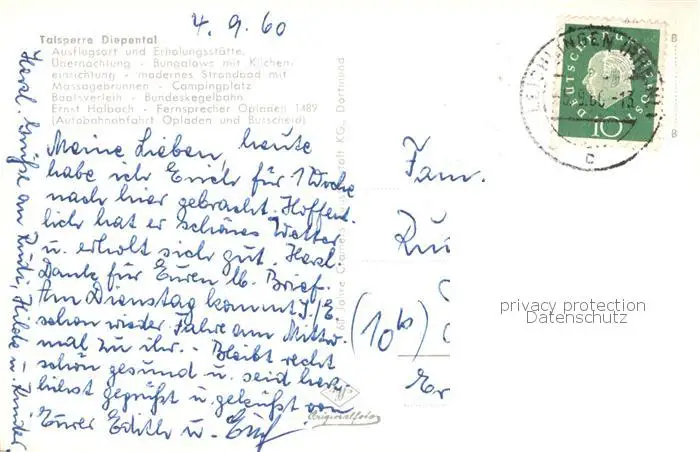 4. 9. 60
Talsperre Diepental
Ausflugsort und Erholungsstätte.
Übernachtung - Bungalows mit Küchen-
einrichtung - modernes Strandbad mit
Massagebrunnen - Campingplatz
Bootsverleih - Bundeskegelbahn
Ernst Halbach - Fernsprecher Opladen 1489
(Autobahnabfahrt Opladen und Burscheid)
Meine Lieben, heute
habe ich Erich für 1 Woche
nach hier gebracht. Hoffent
lich hat er schönes Wetter
u. erholt sich gut. Herzl.
Dank für Euren lb. Brief.
Am Dienstag kommt
schon wieder. Fahre am Mittw.
mal zu ihr. - Bleibt recht
schön gesund u. seid herz-
lichst gegrüßt u. geküßt von
Eurer Edith u.
Herzl. Grüße an Rudi, Hilde u. Kinder
Fam.
(10b)
Originalfoto
DEUTSCHE BUNDESPOST
10
privacy protection
Datenschutz